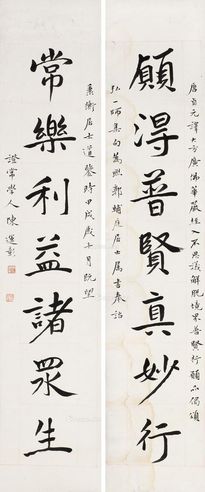 願得普賢真妙行
常樂利益諸眾生
唐貞元譯大方廣佛華嚴經入不思議解脫境界普賢行願品偈頌
弘一師集句為熙鄭蛹庭居士屬書奉詒
兼衛居士道鑒時甲戌歲十月既望
證常學人陳運彰